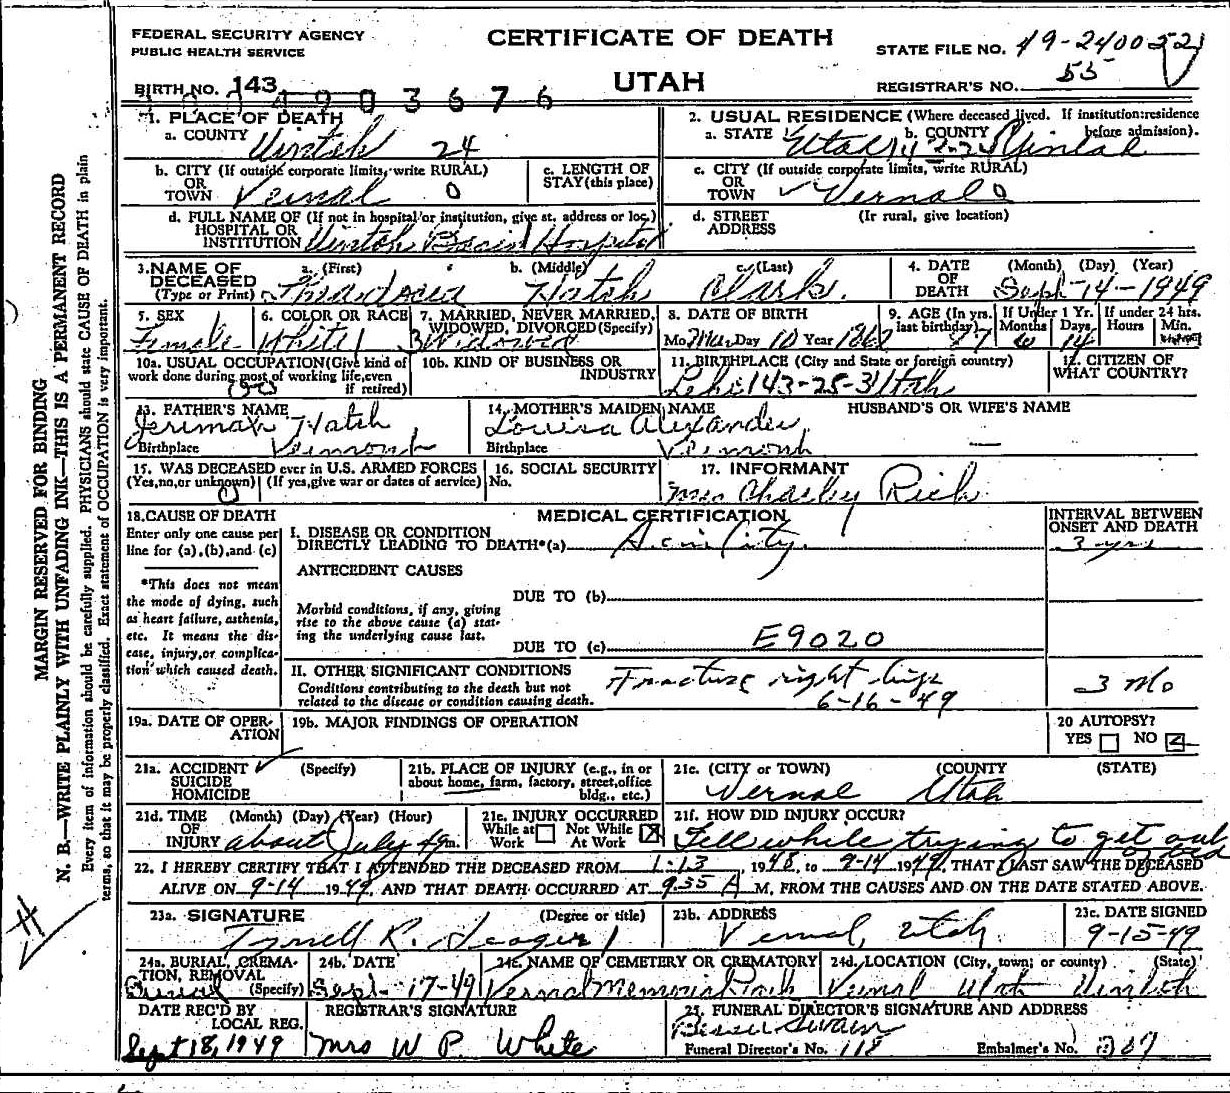 FEDERAL SECURITY AGENCY
PUBLIC HEALTH SERVICE
CERTIFICATE OF DEATH
UTAH
STATE FILE NO. 49-2400521
REGISTRAR'S NO. 55
BIRTH NO. 143 4903676
1. PLACE OF DEATH
a. COUNTY Uintah 24
2. USUAL RESIDENCE (Where deceased lived. If institution: residence before admission).
a. STATE Utah b. COUNTY Uintah
b. CITY (If outside corporate limits, write RURAL)
OR
TOWN Vernal 0
c. LENGTH OF
STAY (this place)
c. CITY (If outside corporate limits, write RURAL)
OR
TOWN Vernal 0
d. FULL NAME OF (If not in hospital or institution, give st. address or loc.)
HOSPITAL OR
INSTITUTION Uintah Basin Hospital
d. STREET (If rural, give location)
ADDRESS
3. NAME OF a. (First) b. (Middle) c. (Last)
DECEASED
(Type or Print) Hatch Clark.
4. DATE (Month) (Day) (Year)
OF
DEATH Sept-14-1949
5. SEX
Female
6. COLOR OR RACE
White 1
7. MARRIED, NEVER MARRIED,
WIDOWED, DIVORCED (Specify)
3 Widowed
8. DATE OF BIRTH
Mo. Mar Day 10 Year 1862
9. AGE (In yrs. last birthday) 87
If Under 1 Yr. Months Days 6 14
If under 24 hrs. Hours Min.
10a. USUAL OCCUPATION (Give kind of
work done during most of working life, even
if retired)
10b. KIND OF BUSINESS OR
INDUSTRY
11. BIRTHPLACE (City and State or foreign country)
Lehi 143-25-3 Utah
12. CITIZEN OF
WHAT COUNTRY?
13. FATHER'S NAME
Jerimah Hatch
Birthplace Vermont
14. MOTHER'S MAIDEN NAME
Louisa Alexander
Birthplace Vermont
HUSBAND'S OR WIFE'S NAME
—
15. WAS DECEASED ever in U.S. ARMED FORCES
(Yes, no, or unknown) (If yes, give war or dates of service)
0
16. SOCIAL SECURITY
No.
17. INFORMANT
Mrs Charley Rich
18. CAUSE OF DEATH
Enter only one cause per
line for (a), (b), and (c)
*This does not mean
the mode of dying, such
as heart failure, asthenia,
etc. It means the dis-
ease, injury, or complica-
tion which caused death.
MEDICAL CERTIFICATION
I. DISEASE OR CONDITION
DIRECTLY LEADING TO DEATH*(a) Senility.
INTERVAL BETWEEN
ONSET AND DEATH
3 yrs
ANTECEDENT CAUSES
DUE TO (b)
Morbid conditions, if any, giving
rise to the above cause (a) stat-
ing the underlying cause last.
DUE TO (c) E9020
II. OTHER SIGNIFICANT CONDITIONS
Conditions contributing to the death but not
related to the disease or condition causing death.
Fracture right hip
6-16-49
3 Mo
19a. DATE OF OPER-
ATION
19b. MAJOR FINDINGS OF OPERATION
20 AUTOPSY?
YES NO
21a. ACCIDENT ✓ (Specify)
SUICIDE
HOMICIDE
21b. PLACE OF INJURY (e.g., in or
about home, farm, factory, street, office
bldg., etc.)
21c. (CITY or TOWN) (COUNTY) (STATE)
Vernal Utah
21d. TIME (Month) (Day) (Year) (Hour)
OF
INJURY about July 49 m.
21e. INJURY OCCURRED
While at Work Not While At Work
21f. HOW DID INJURY OCCUR?
Fell while trying to get out of bed
22. I HEREBY CERTIFY THAT I ATTENDED THE DECEASED FROM 1-13, 1948, to 9-14 1949, THAT I LAST SAW THE DECEASED
ALIVE ON 9-14 1949, AND THAT DEATH OCCURRED AT 9:35 A M, FROM THE CAUSES AND ON THE DATE STATED ABOVE.
23a. SIGNATURE (Degree or title)
Tyrrell R. Seager
23b. ADDRESS
Vernal, Utah.
23c. DATE SIGNED
9-15-49
24a. BURIAL, CREMA-
TION, REMOVAL
(Specify) Burial
24b. DATE
Sept-17-49
24c. NAME OF CEMETERY OR CREMATORY
Vernal Memorial Park
24d. LOCATION (City, town, or county) (State)
Vernal Utah Uintah
DATE REC'D BY
LOCAL REG.
Sept 18, 1949
REGISTRAR'S SIGNATURE
Mrs W P. White
25. FUNERAL DIRECTOR'S SIGNATURE AND ADDRESS
Swain
Funeral Director's No. 118 Embalmer's No. 307
MARGIN RESERVED FOR BINDING
N. B.—WRITE PLAINLY WITH UNFADING INK—THIS IS A PERMANENT RECORD
Every item of information should be carefully supplied. PHYSICIANS should state CAUSE OF DEATH in plain
terms, so that it may be properly classified. Exact statement of OCCUPATION is very important.